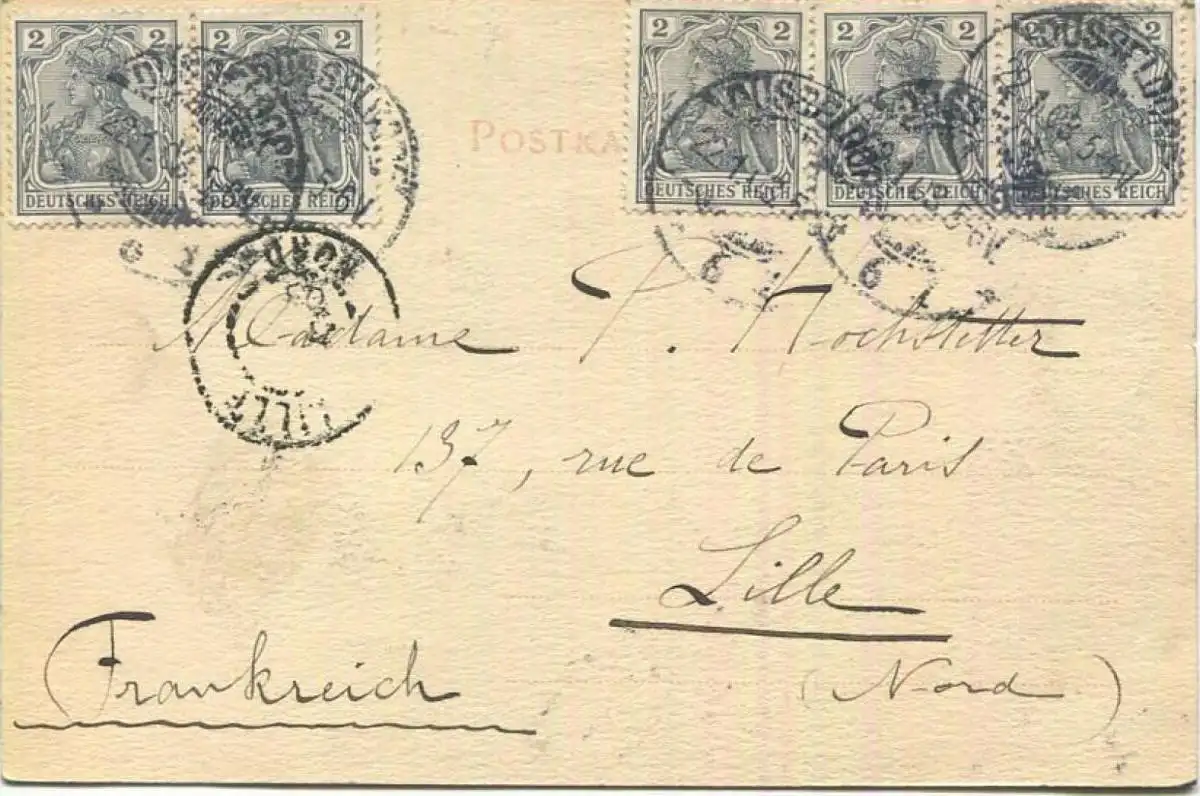 2 2 2 2 2 2 2 2 2 2
DEUTSCHES REICH DEUTSCHES REICH DEUTSCHES REICH DEUTSCHES REICH DEUTSCHES REICH
DUSSELDORF
POSTKA
NORD
LILLE
Madame P. Hochstetter
137, rue de Paris
Lille
Frankreich
(Nord)